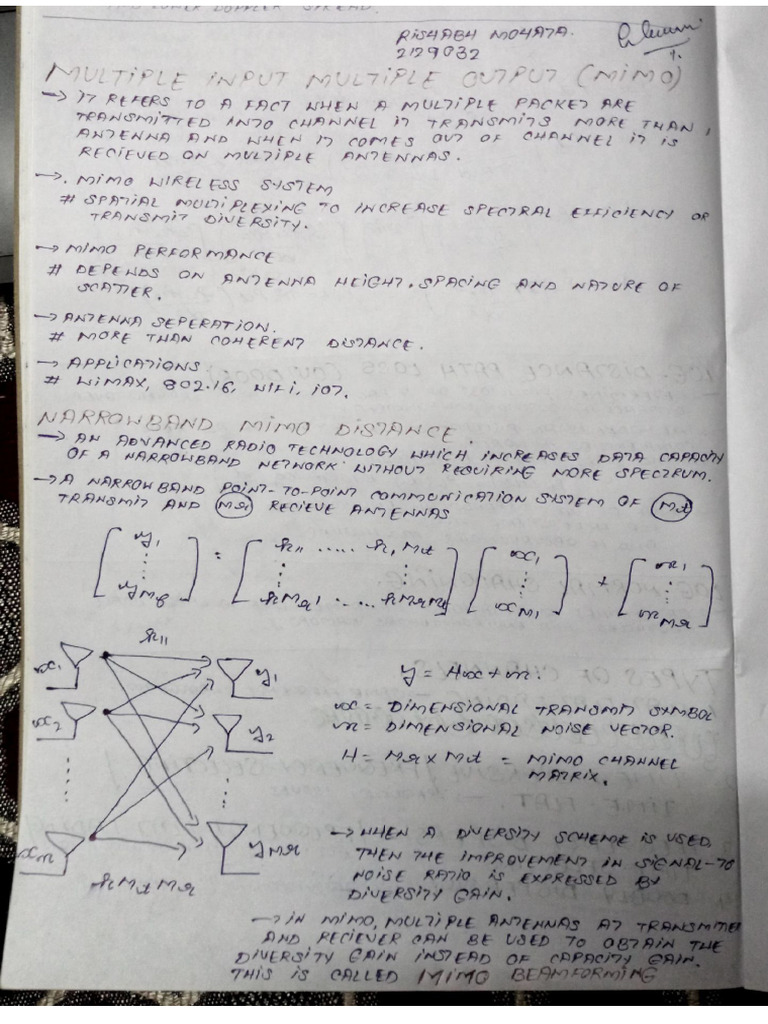 RISHABH MOHATA.
2129032
MULTIPLE INPUT MULTIPLE OUTPUT (MIMO)
→ IT REFERS TO A FACT WHEN A MULTIPLE PACKET ARE
TRANSMITTED INTO CHANNEL IT TRANSMITS MORE THAN 1
ANTENNA AND WHEN IT COMES OUT OF CHANNEL IT IS
RECIEVED ON MULTIPLE ANTENNAS.
→. MIMO WIRELESS SYSTEM
# SPATIAL MULTIPLEXING TO INCREASE SPECTRAL EFFICIENCY OR
TRANSMIT DIVERSITY.
→ MIMO PERFORMANCE
# DEPENDS ON ANTENNA HEIGHT, SPACING AND NATURE OF
SCATTER.
→ ANTENNA SEPERATION.
# MORE THAN COHERENT DISTANCE.
→ APPLICATIONS
# WIMAX, 802.16, WIFI, IOT.
NARROWBAND MIMO DISTANCE.
→ AN ADVANCED RADIO TECHNOLOGY WHICH INCREASES DATA CAPACITY
OF A NARROWBAND NETWORK WITHOUT REQUIRING MORE SPECTRUM.
→ A NARROWBAND POINT-TO-POINT COMMUNICATION SYSTEM OF Mt
TRANSMIT AND Mr RECIEVE ANTENNAS
[y1 ⋮ yMr] = [h11 ..... h1Mt ⋮ ⋮ hMr1 ..... hMrMt] [x1 ⋮ xMt] + [n1 ⋮ nMr]
h11
x1 y1
y = Hx + n.
x2 y2
x = DIMENSIONAL TRANSMIT SYMBOL
n = DIMENSIONAL NOISE VECTOR.
H = Mr x Mt = MIMO CHANNEL
MATRIX.
xn yMr
hMtMr
→ WHEN A DIVERSITY SCHEME IS USED
THEN THE IMPROVEMENT IN SIGNAL-TO
NOISE RATIO IS EXPRESSED BY
DIVERSITY GAIN.
→ IN MIMO, MULTIPLE ANTENNAS AT TRANSMITTER
AND RECIEVER CAN BE USED TO OBTAIN THE
DIVERSITY GAIN INSTEAD OF CAPACITY GAIN.
THIS IS CALLED MIMO BEAMFORMING